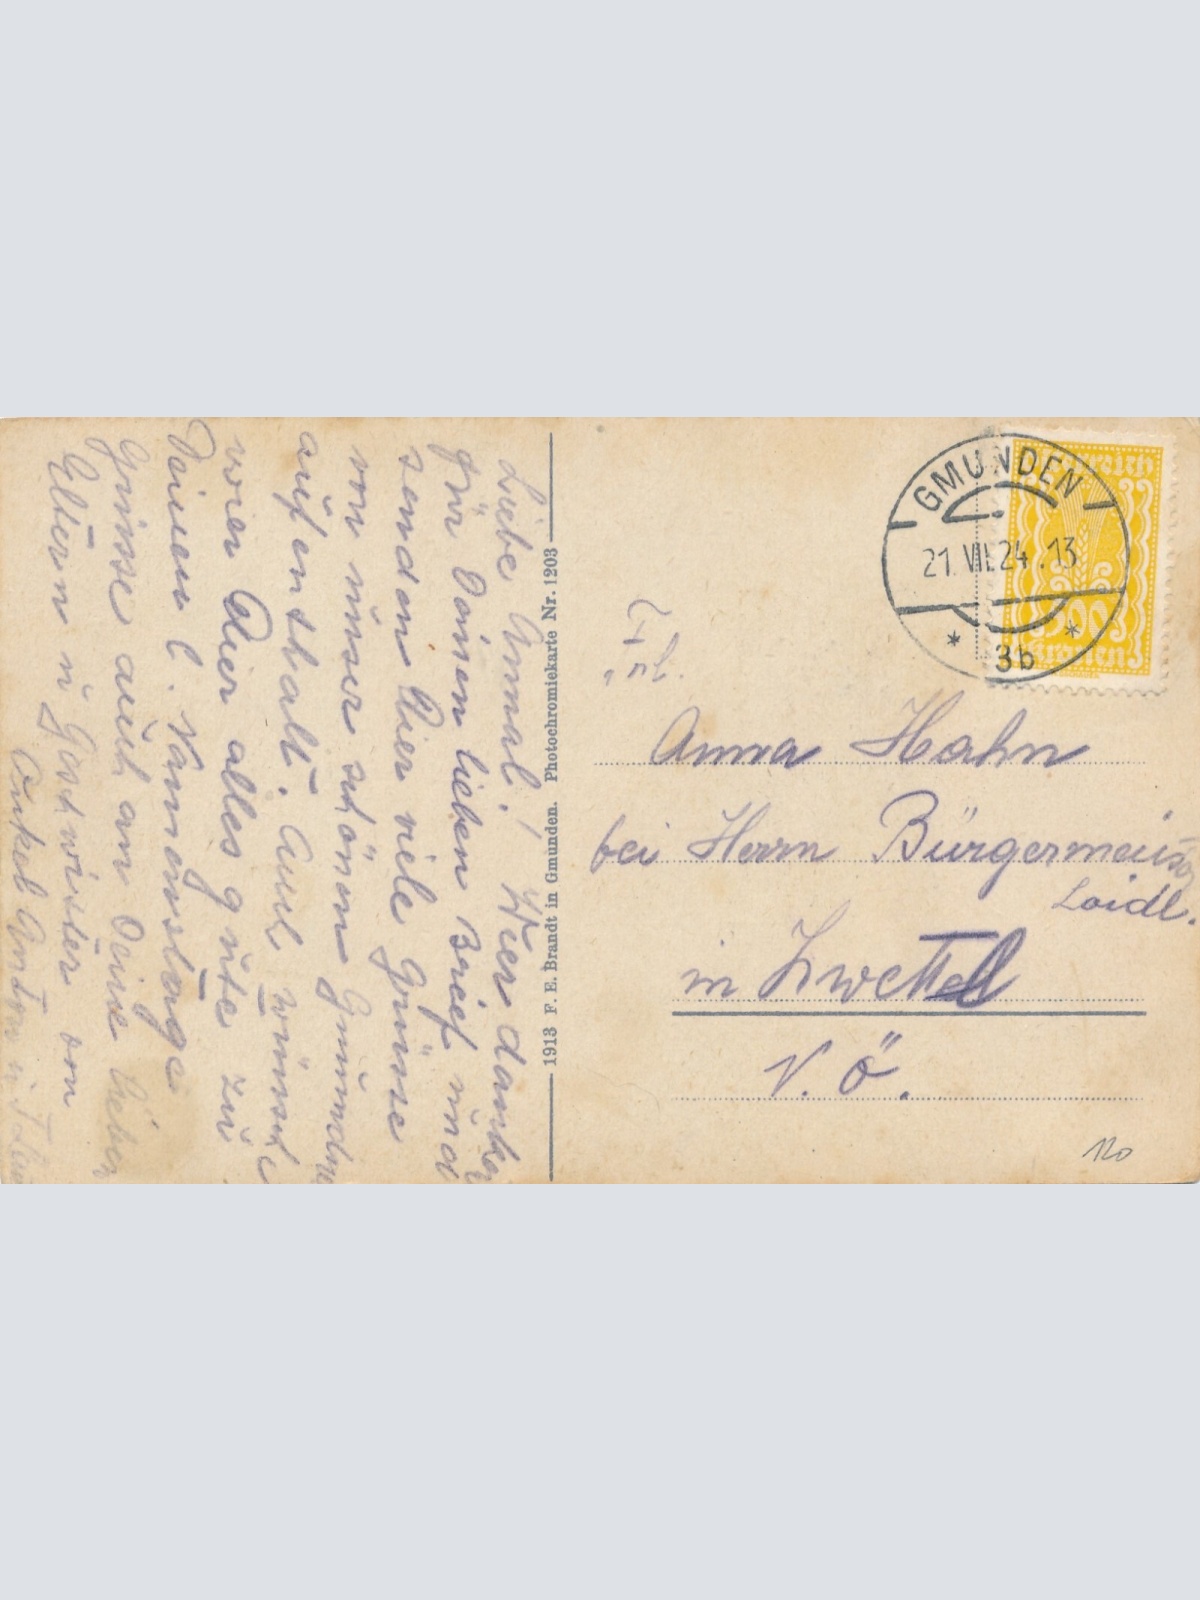 Liebe Annal! Wier danken
für Deinen lieben Brief und
senden Dier viele Grüsse
von unser schönen Gmundner
aufenthalt. Auch wünsche
wier Dier alles gute zu
Deinen l. Namenstage
Grüsse auch an Deine lieben
Eltern u Geschwister von
Onkel Anton u
1913 F. E. Brandt in Gmunden. Photochromiekarte Nr. 1203
GMUNDEN
21. VII. 24. 13
* 3b *
Österreich
300
Kronen
Anna Hahn
bei Herrn Bürgermeister
Loidl.
in Zwettl
N. Ö.
120